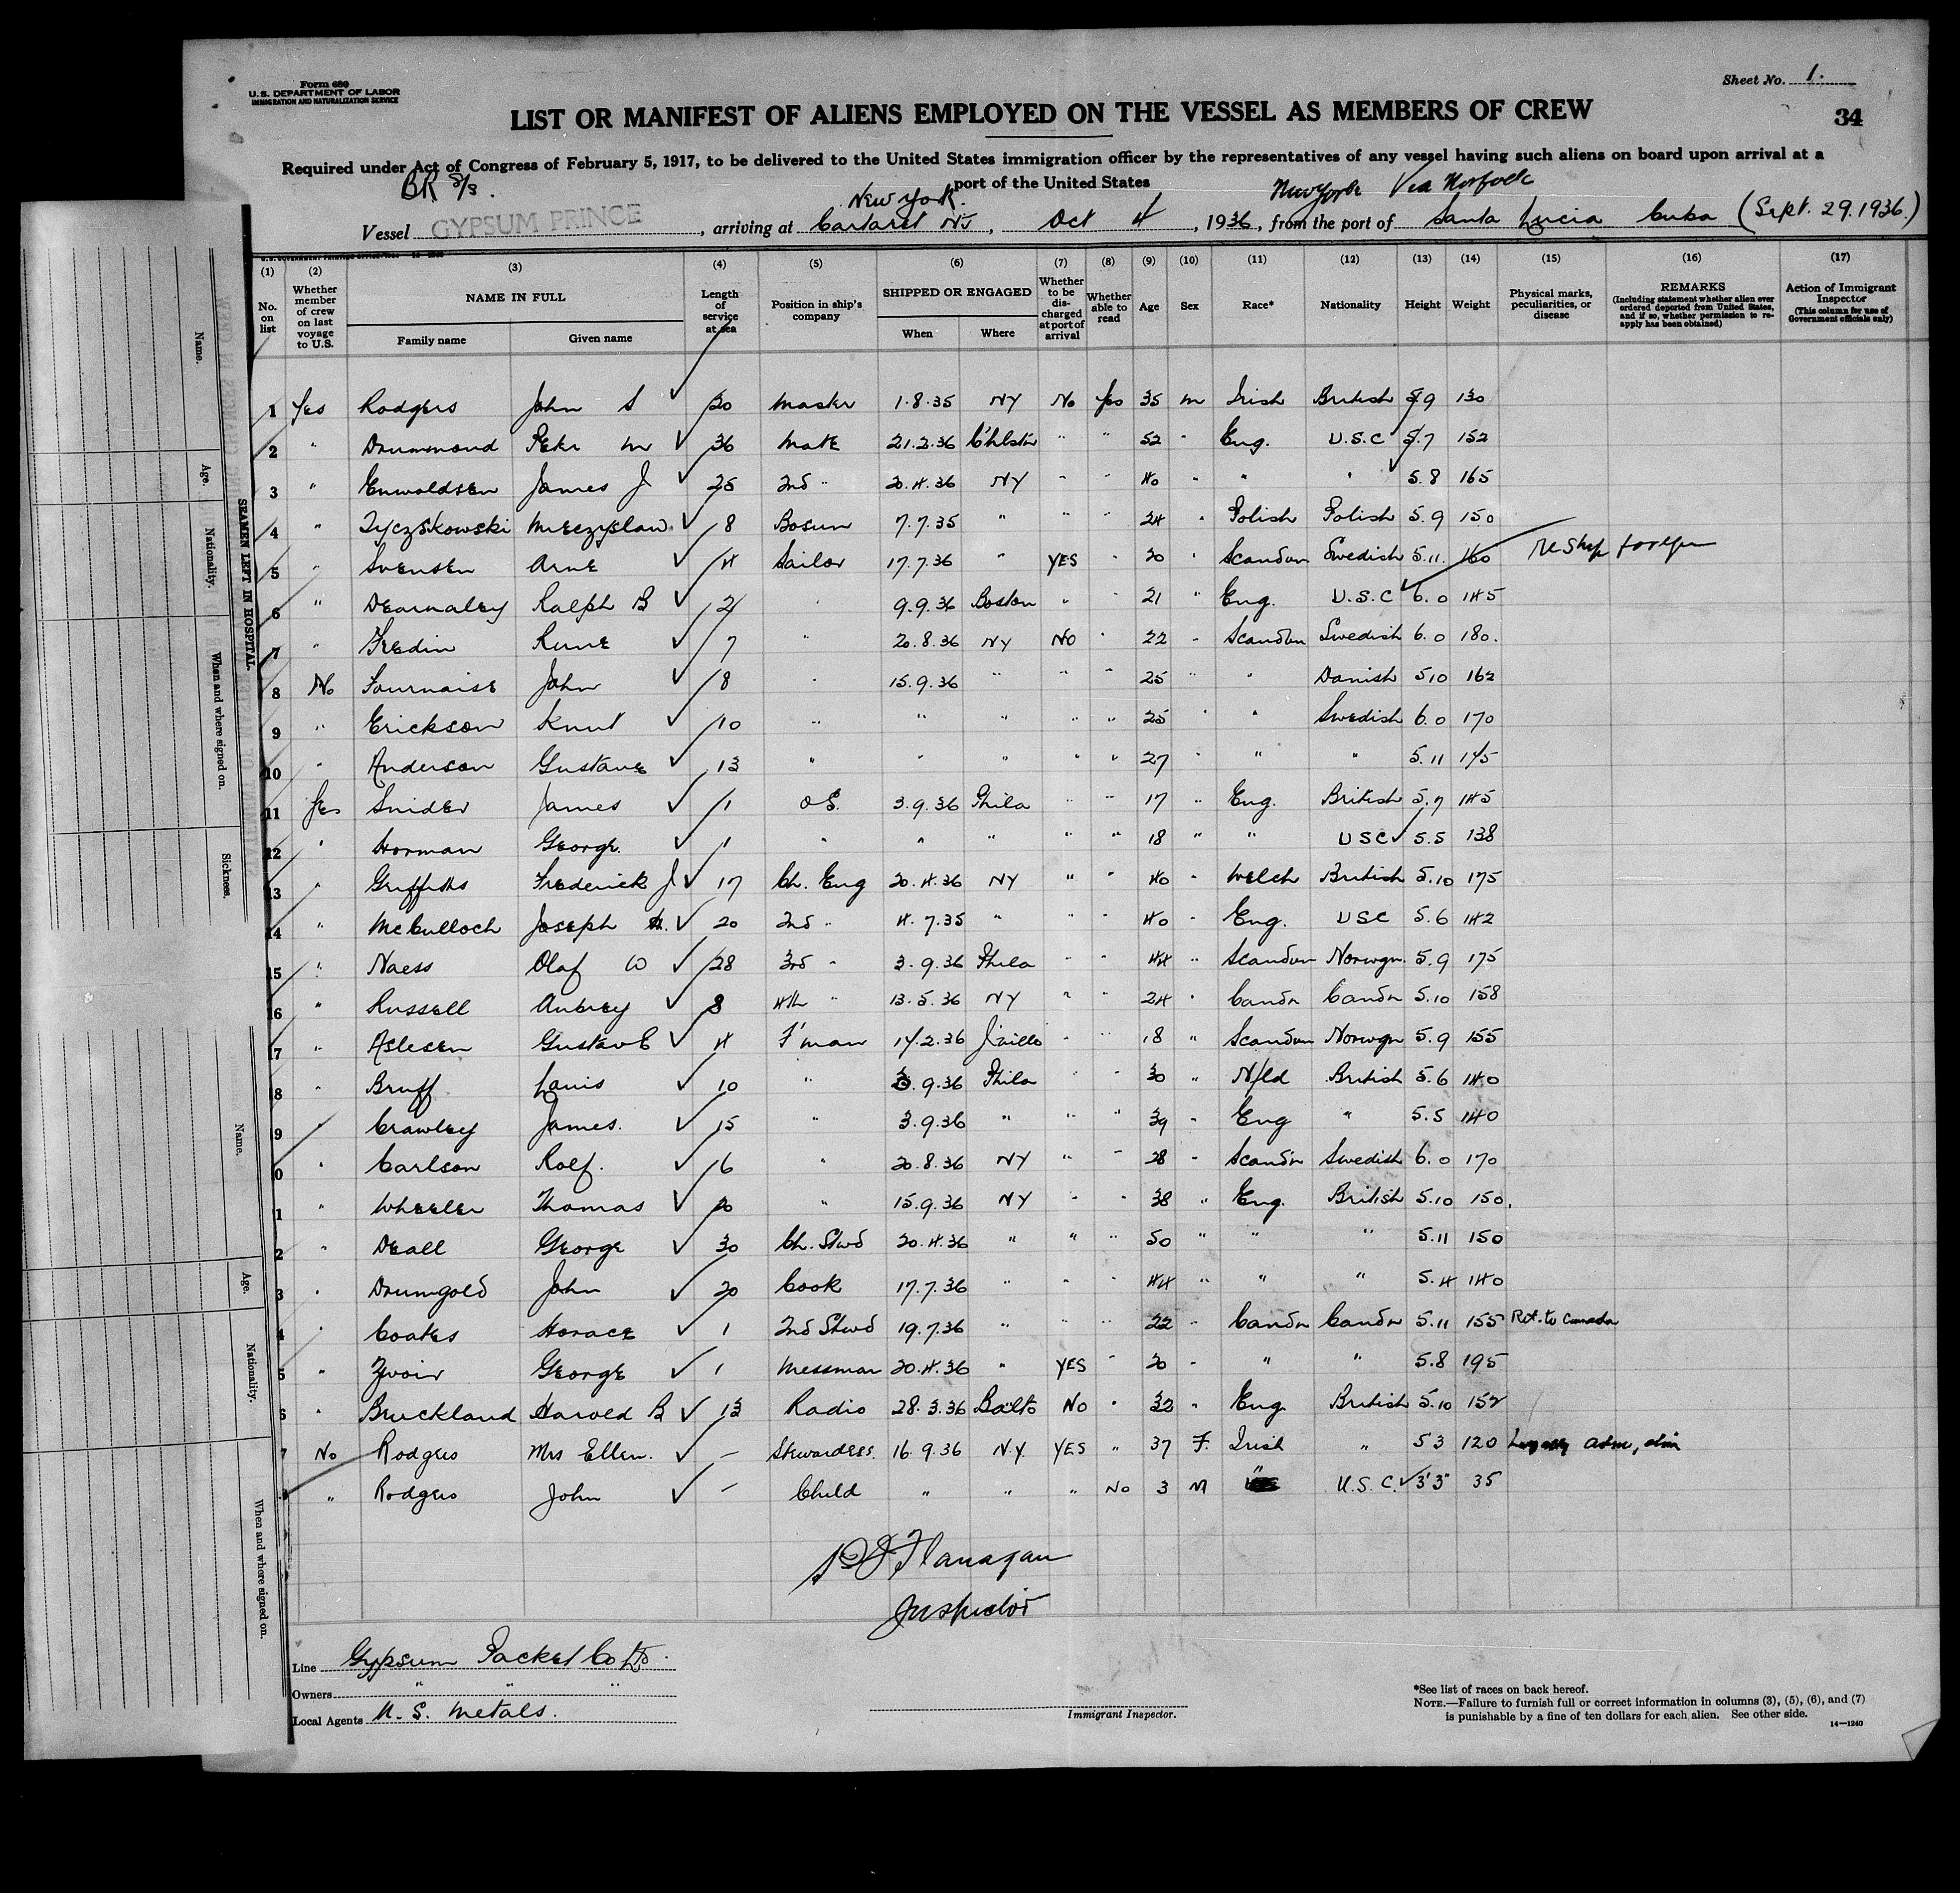 Form 680
U.S. DEPARTMENT OF LABOR
IMMIGRATION AND NATURALIZATION SERVICE
Sheet No. 1.
LIST OR MANIFEST OF ALIENS EMPLOYED ON THE VESSEL AS MEMBERS OF CREW
34
Required under Act of Congress of February 5, 1917, to be delivered to the United States immigration officer by the representatives of any vessel having such aliens on board upon arrival at a
port of the United States
BR S/S. New York. New York Via Norfolk
Vessel GYPSUM PRINCE, arriving at Cartaret NJ, Oct 4, 1936, from the port of Santa Lucia Cuba (Sept. 29. 1936.)
(1) (2) (3) (4) (5) (6) (7) (8) (9) (10) (11) (12) (13) (14) (15) (16) (17)
No. on list
Whether member of crew on last voyage to U.S.
NAME IN FULL
Family name
Given name
Length of service at sea
Position in ship's company
SHIPPED OR ENGAGED
When
Where
Whether to be discharged at port of arrival
Whether able to read
Age
Sex
Race*
Nationality
Height
Weight
Physical marks, peculiarities, or disease
REMARKS
(Including statement whether alien ever ordered deported from United States, and if so, whether permission to reapply has been obtained)
Action of Immigrant Inspector
(This column for use of Government officials only)
1 Yes Rodgers John S 20 Master 1.8.35 NY No Yes 35 m Irish British 5.9 130
2 " Drummond Peter M 36 Mate 21.2.36 C'hlstn " " 52 " Eng. U.S.C 5.7 152
3 " Enwoldsen James J 25 2nd " 20.4.36 NY " " 40 " " " 5.8 165
4 " Zyczskowski Mieczyslaw 8 Bosun 7.7.35 " " " 24 " Polish Polish 5.9 150
5 " Svensen Arne 4 Sailor 17.7.36 " YES " 30 " Scandvn Swedish 5.11. 160 Reship foreign
6 " Dearnaley Ralph B 2 " 9.9.36 Boston " " 21 " Eng. U.S.C 6.0 145
7 " Fredin Rune 7 " 20.8.36 NY NO " 22 " Scandvn Swedish 6.0 180.
8 No Fournaise John 8 " 15.9.36 " " " 25 " " Danish 5.10 162
9 " Erickson Knut 10 " " " " " 25 " " Swedish 6.0 170
10 " Anderson Gustave 13 " " " " " 27 " " " 5.11 145
11 Yes Snider James 1 O.S. 3.9.36 Phila " " 17 " Eng. British 5.7 145
12 " Horman George. 1 " " " " " 18 " " USC 5.5 138
13 " Griffiths Frederick J 17 Ch. Eng 20.4.36 NY " " 40 " Welch British 5.10 175
14 " McCulloch Joseph H. 20 2nd " 4.7.35 " " " 40 " Eng. USC 5.6 142
15 " Naess Olaf W 28 3rd " 3.9.36 Phila " " 44 " Scandvn Norwgn. 5.9 175
16 " Russell Aubrey 8 4th " 13.5.36 NY " " 24 " Candn Candn 5.10 158
17 " Aslesen Gustav E 4 F'man 14.2.36 J'ville " " 18 " Scandvn Norwgn 5.9 155
8 " Bruff Louis 10 " 3.9.36 Phila " " 30 " N/ld British 5.6 140
9 " Crawley James. 15 " 3.9.36 " " " 39 " Eng " 5.5 140
0 " Carlson Rolf. 6 " 20.8.36 NY " " 28 " Scandn Swedish 6.0 170
1 " Wheeler Thomas 20 " 15.9.36 NY " " 38 " Eng. British 5.10 150.
2 " Deall George 30 Ch. Stwd 20.4.36 " " " 50 " " " 5.11 150
3 " Drumgold John 20 Cook 17.7.36 " " " 44 " " " 5.4 140
4 " Coates Horace 1 2nd Stwd 19.7.36 " " " 22 " Candn Candn 5.11 155 Ret. to Canada
5 " George 1 Messman 20.4.36 " YES " 20 " " " 5.8 195
6 " Bruckland Harold B 13 Radio 28.3.36 Balto No " 32 " Eng British 5.10 152
7 No Rodgers Mrs Ellen. – Stewardess. 16.9.36 N.Y. YES " 37 F. Irish " 5 3 120 Legally adm,
" Rodgers John – Child " " " No 3 M " U.S.C. 3'3" 35
Flanagan
Inspector
Line Gypsum Packet Co Ltd.
Owners " " "
Local Agents U.S. Metals.
Immigrant Inspector.
*See list of races on back hereof.
NOTE.—Failure to furnish full or correct information in columns (3), (5), (6), and (7)
is punishable by a fine of ten dollars for each alien. See other side.
14—1240
SEAMEN LEFT IN HOSPITAL.
Name.
Age.
Nationality.
When and where signed on.
Sickness.
Name.
Age.
Nationality.
When and where signed on.